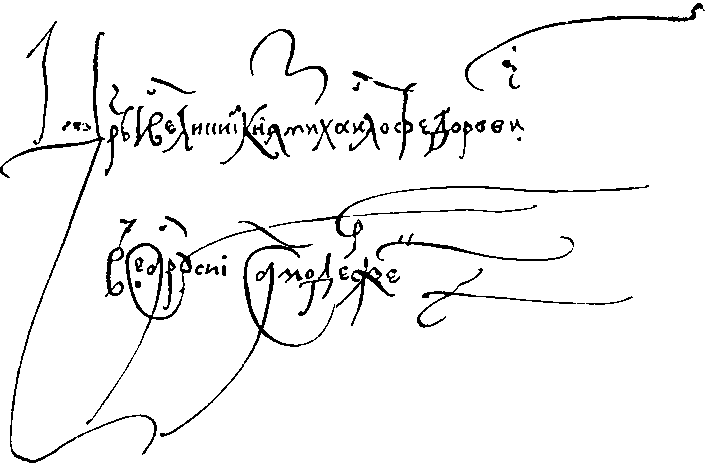 Црь і великиі княз михаило федорович
всеа русиі самодержец